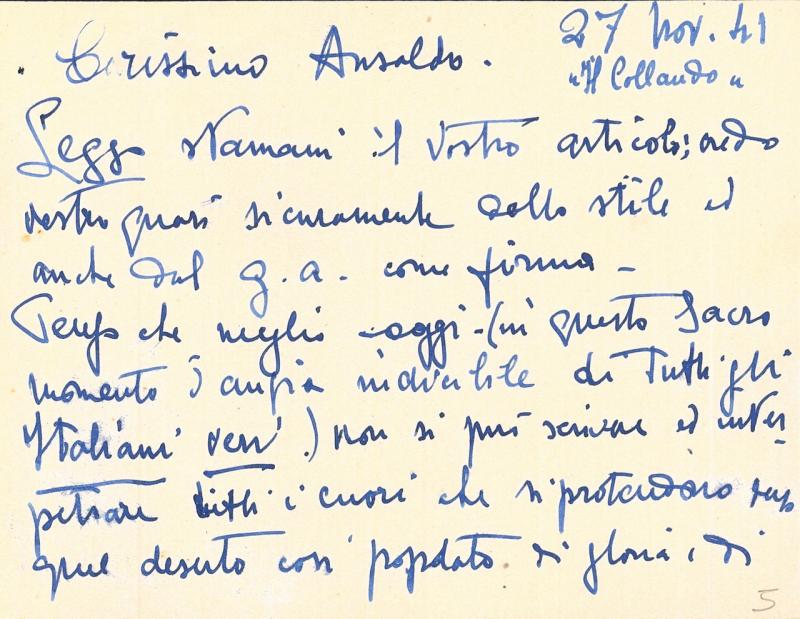 27 Nov. 41
"Il Collaudo"
Carissimo Ansaldo.
Leggo stamani il vostro articolo; credo
vostro quasi sicuramente dallo stile ed
anche dal g. a. come firma -
Penso che meglio oggi - (in questo sacro
momento d'ansia indicibile di tutti gli
Italiani veri.) non si può scrivere ed inter-
petrare tutti i cuori che si protendono verso
quel deserto così popolato di gloria, di
5